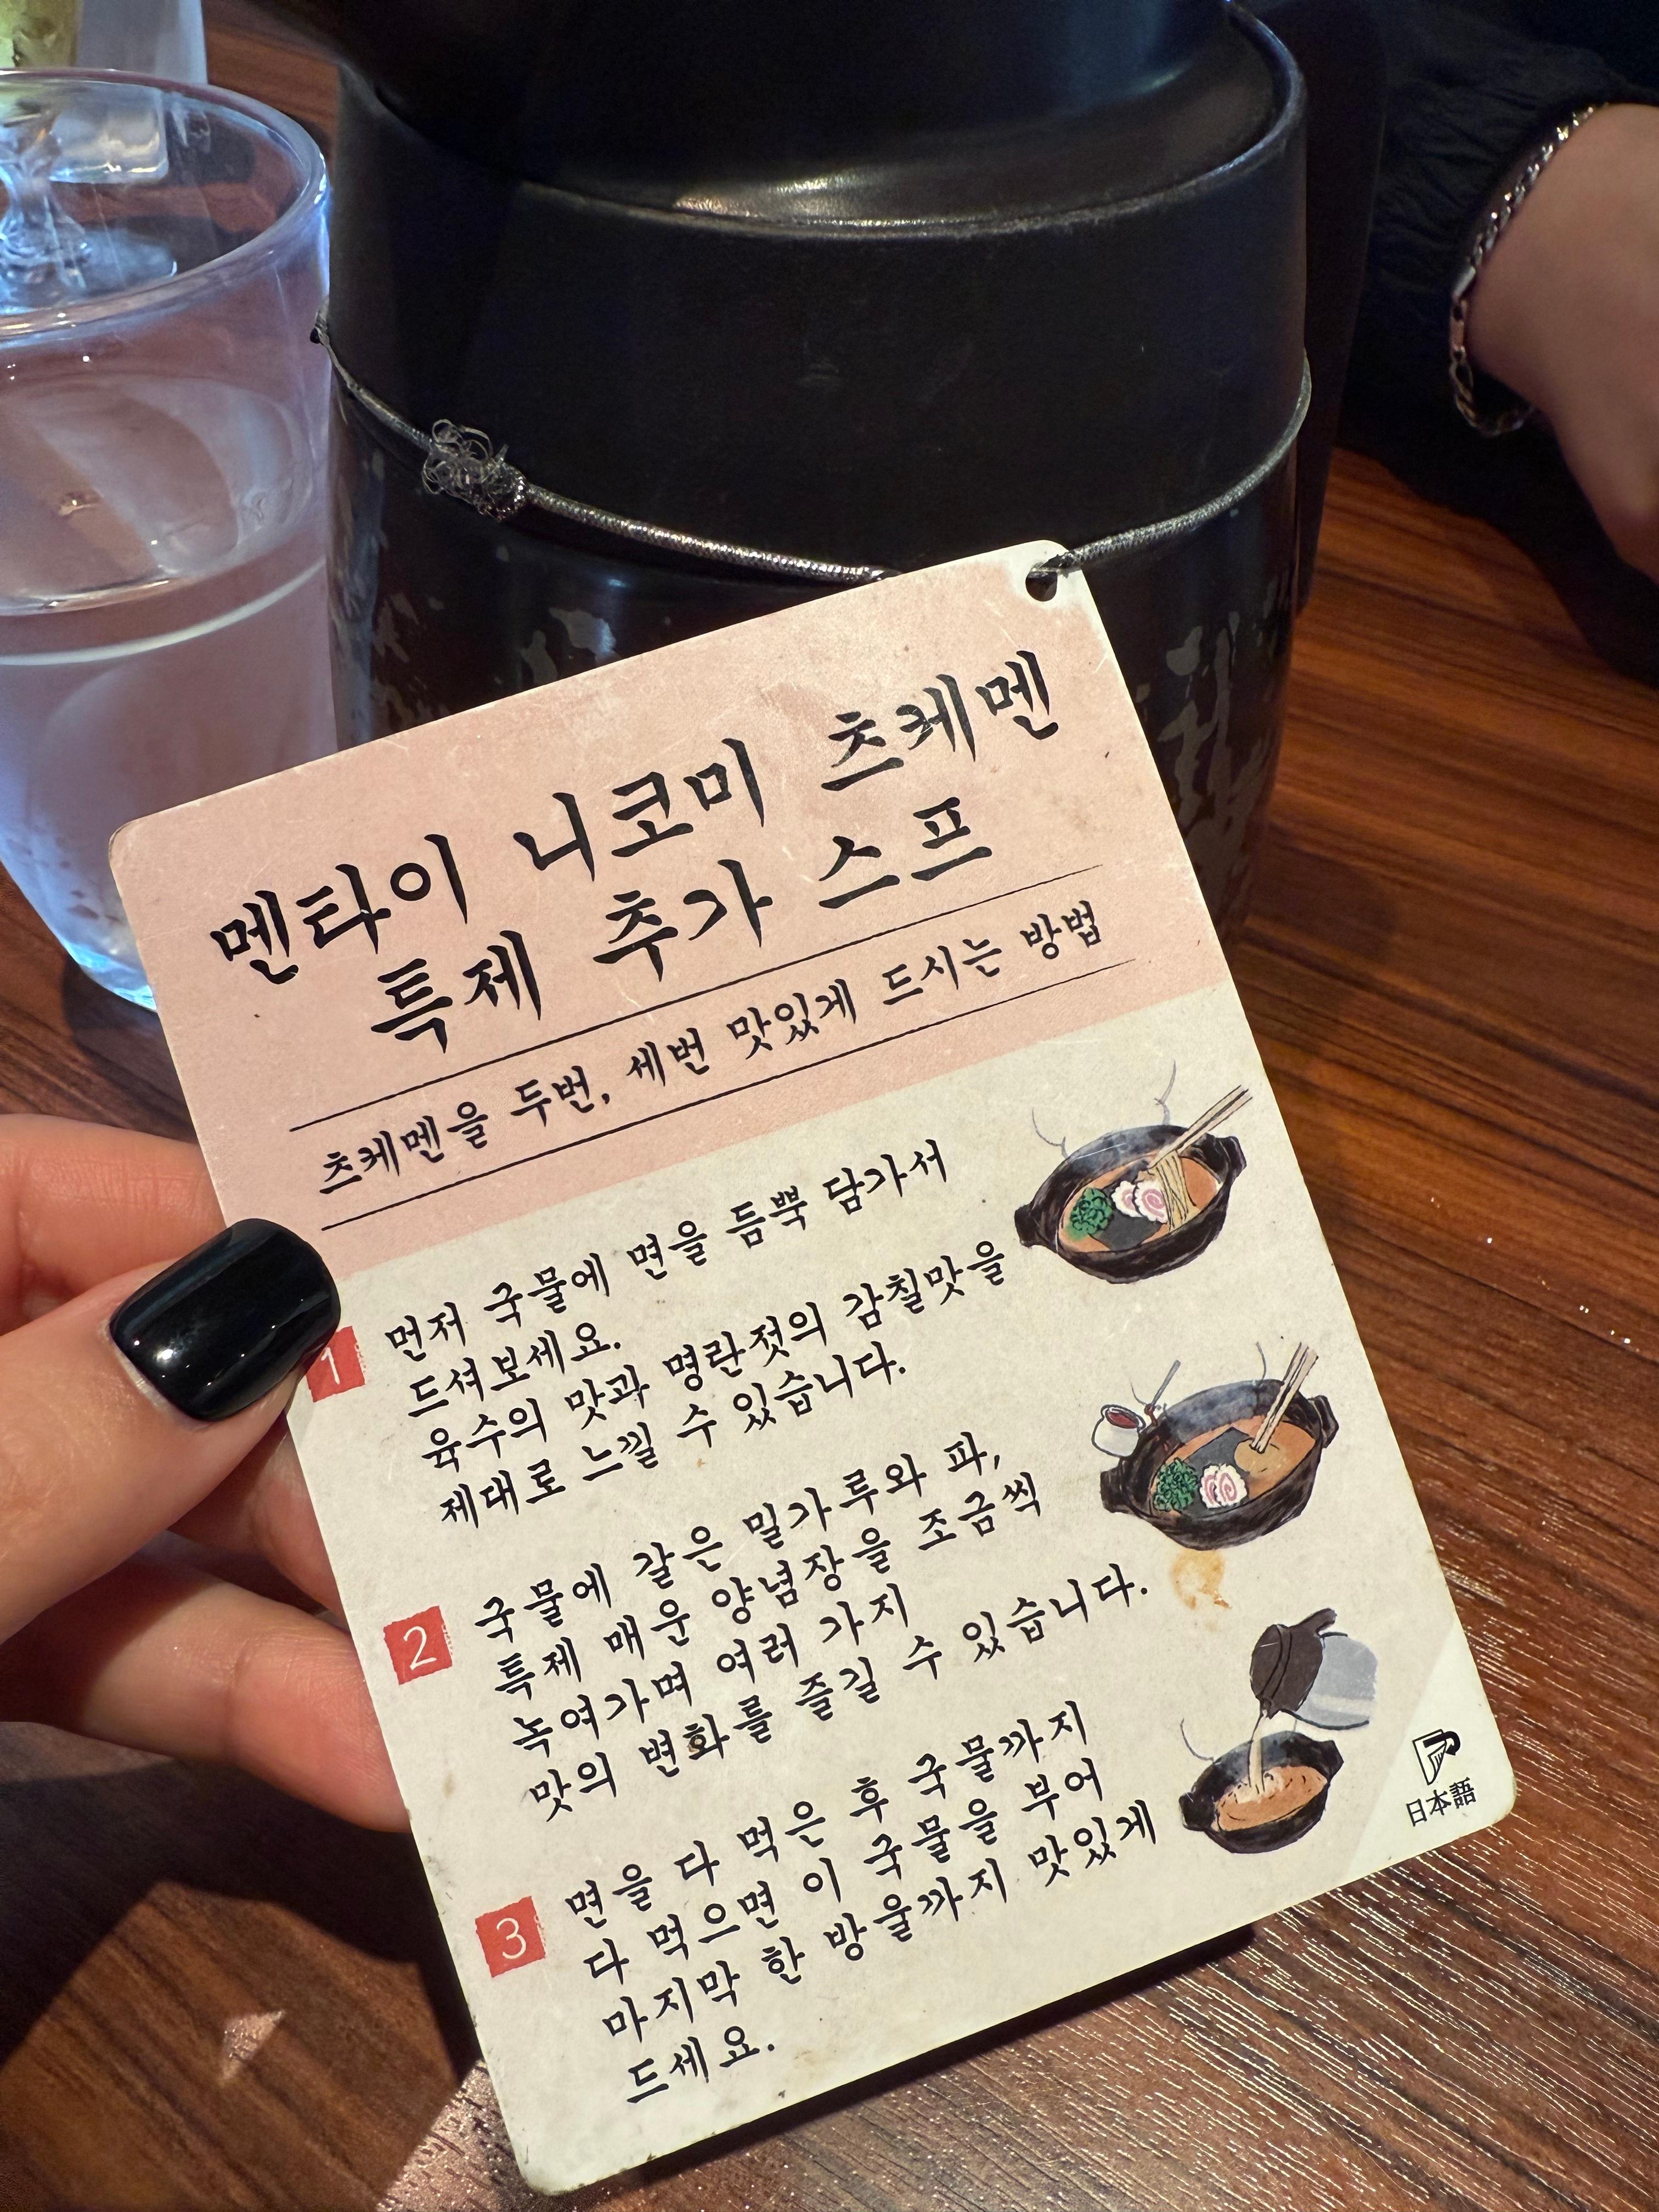 멘타이 니코미 츠케멘
특제 추가 스프
츠케멘을 두번, 세번 맛있게 드시는 방법
1
먼저 국물에 면을 듬뿍 담가서
드셔보세요.
육수의 맛과 명란젓의 감칠맛을
제대로 느낄 수 있습니다.
2
국물에 갈은 밀가루와 파,
특제 매운 양념장을 조금씩
녹여가며 여러 가지
맛의 변화를 즐길 수 있습니다.
3
면을 다 먹은 후 국물까지
다 먹으면 이 국물을 부어
마지막 한 방울까지 맛있게
드세요.
日本語